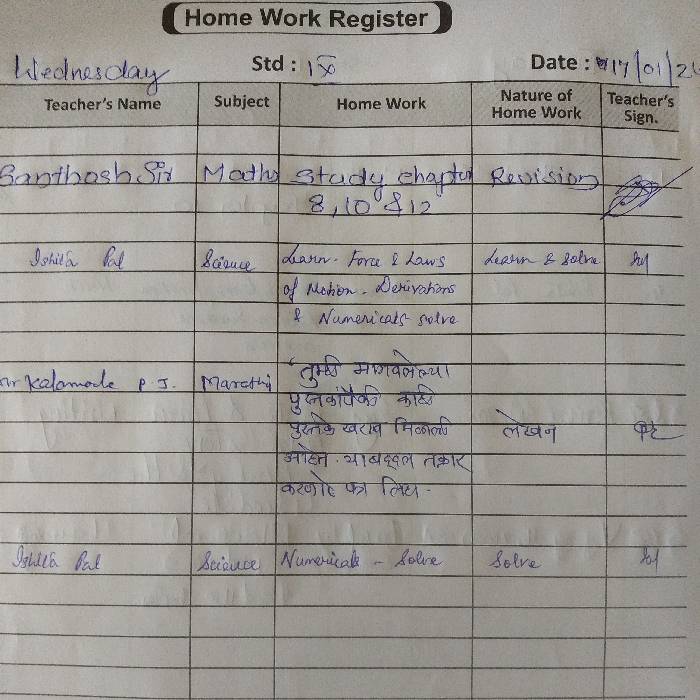 Home Work Register
Wednesday Std : IX Date : 17/01/24
Teacher's Name Subject Home Work Nature of Home Work Teacher's Sign.
Santhosh Sir Maths Study chapter Revision
8, 10 & 12
Ishita Pal Science Learn - Force & Laws Learn & Solve
of Motion - Derivations
& Numericals solve
Kalamode P. J. Marathi तुम्ही मागवलेल्या
पुस्तकांपैकी काही
पुस्तके खराब मिळाली लेखन
आहेत. याबद्दल तक्रार
करणारे पत्र लिहा -
Ishita Pal Science Numericals - Solve Solve